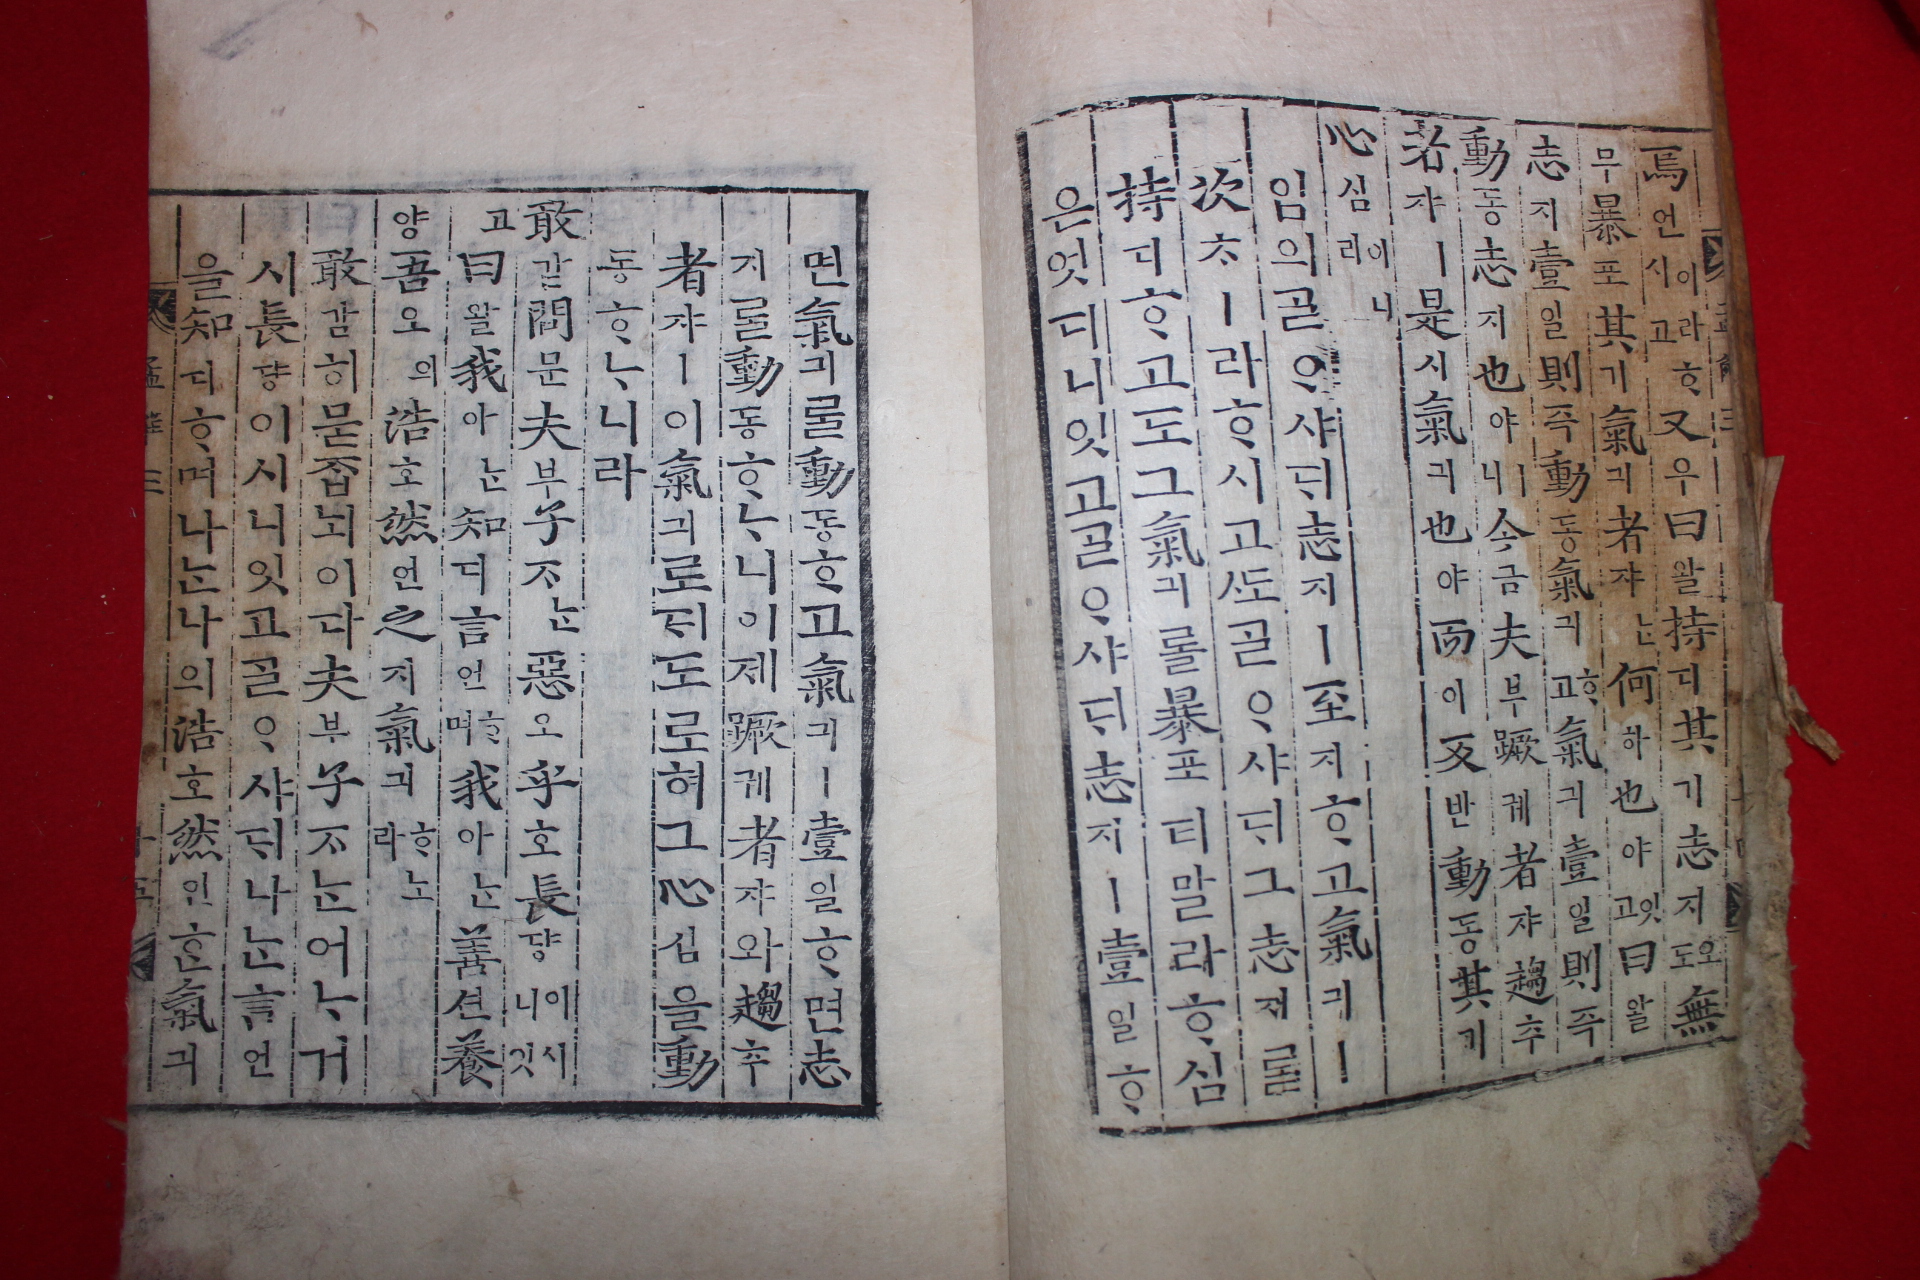 焉언이라ᄒᆞ시고又우曰왈持디其기志지오도無
무暴포其기氣긔者쟈ᄂᆞᆫ何하也야잇고曰왈
志지壹일則즉動동氣긔ᄒᆞ고氣긔壹일則즉
動동志지也야ㅣ니今금夫부蹶궤者쟈趨추
者쟈ㅣ是시氣긔也야而이反반動동其기
心심이니리
임의ᄀᆞᆯᄋᆞ샤ᄃᆡ志지ㅣ至지ᄒᆞ고氣긔ㅣ
次ᄎᆞㅣ라ᄒᆞ시고ᄯᅩᄀᆞᆯᄋᆞ샤ᄃᆡ그志지ᄅᆞᆯ
持디ᄒᆞ고도그氣긔ᄅᆞᆯ暴포티말라ᄒᆞ심
은엇디니잇고ᄀᆞᆯᄋᆞ샤ᄃᆡ志지ㅣ壹일ᄒᆞ
면氣긔ᄅᆞᆯ動동ᄒᆞ고氣긔ㅣ壹일ᄒᆞ면志
지ᄅᆞᆯ動동ᄒᆞᄂᆞ니이제蹶궤者쟈와趨추
者쟈ㅣ이氣긔로ᄃᆡ도로혀그心심을動
동ᄒᆞᄂᆞ니라
敢감問문夫부子ᄌᆞᄂᆞᆫ惡오乎호長댱이시니잇
고曰왈我아ᄂᆞᆫ知디言언ᄒᆞ며我아ᄂᆞᆫ善션養
양吾오의浩호然연之지氣긔ᄒᆞ노라
敢감히묻ᄌᆞᆸ뇌이다夫부子ᄌᆞᄂᆞᆫ어ᄂᆞ거
시長댱이시니잇고ᄀᆞᆯᄋᆞ샤ᄃᆡ나ᄂᆞᆫ言언
을知디ᄒᆞ며나ᄂᆞᆫ나의浩호然연ᄒᆞᆫ氣긔